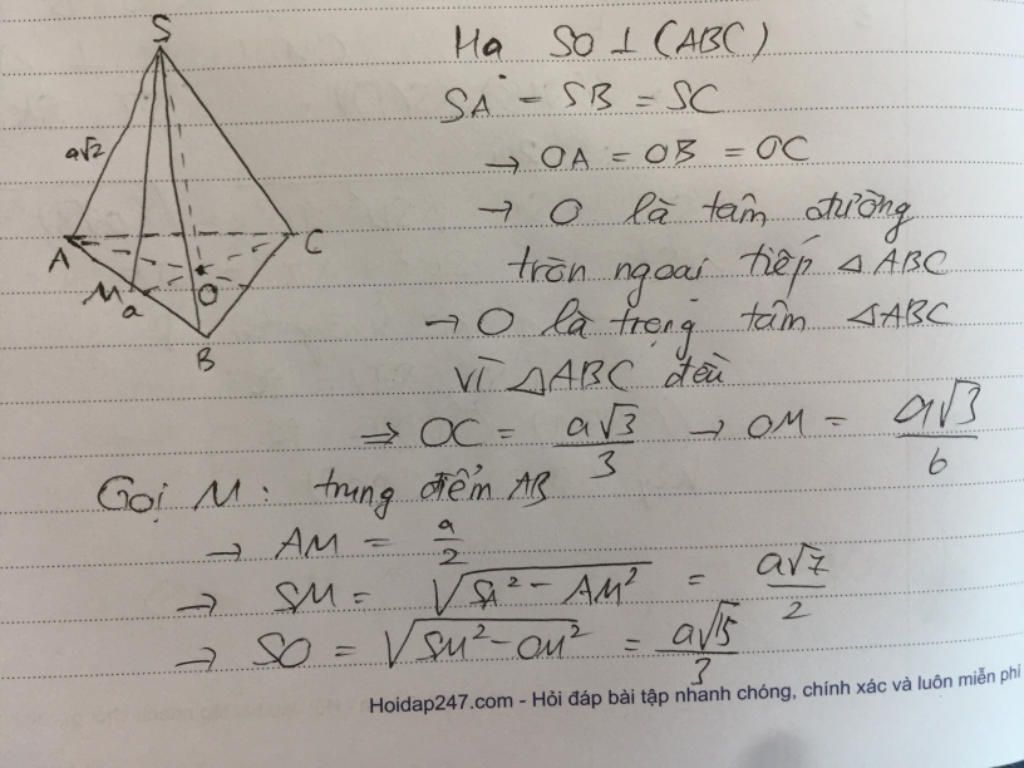 S
Hạ SO ⊥ (ABC)
SA = SB = SC
a√2
→ OA = OB = OC
→ O là tâm đường
tròn ngoại tiếp △ABC
A
C
M
O
a
B
→ O là trọng tâm △ABC
vì △ABC đều
⇒ OC = a√3/3 → OM = a√3/6
Gọi M: trung điểm AB
→ AM = a/2
→ SM = √(SA² - AM²) = a√7/2
→ SO = √(SM² - OM²) = a√15/3
Hoidap247.com - Hỏi đáp bài tập nhanh chóng, chính xác và luôn miễn phí